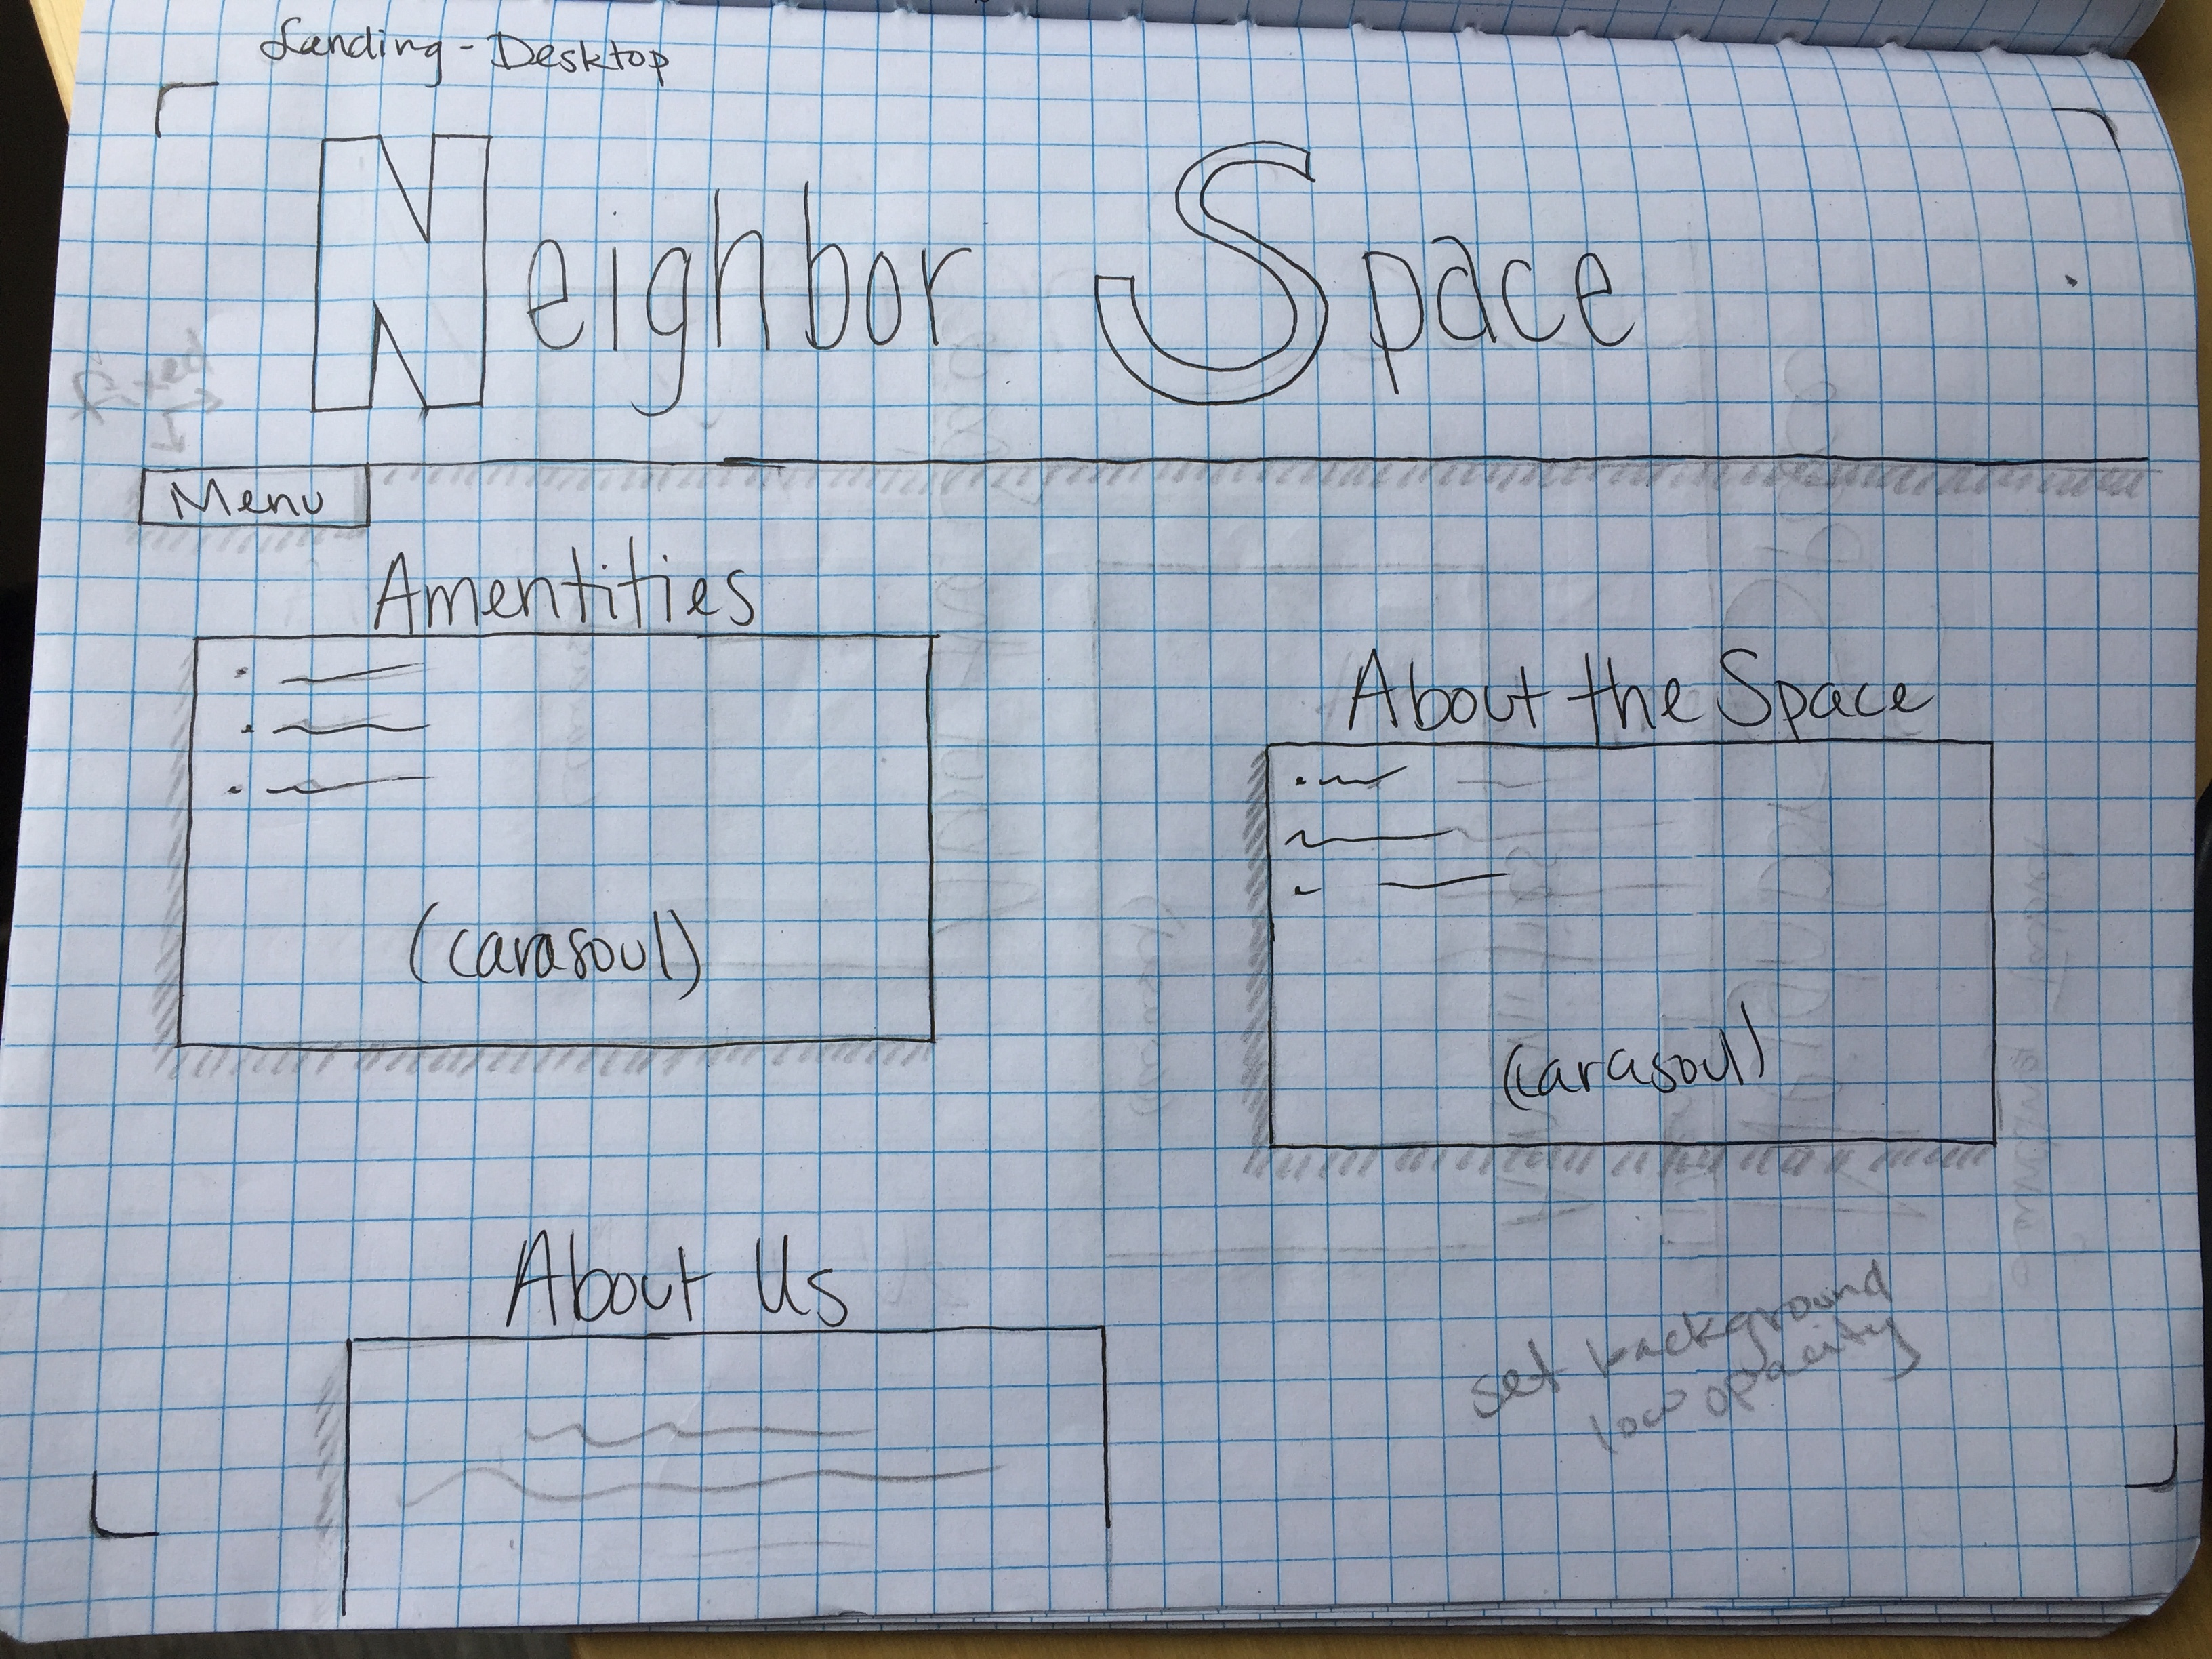 Landing - Desktop
Neighbor Space
Menu
Amentities
(carasoul)
About the Space
(carasoul)
About Us
set background
low opacity